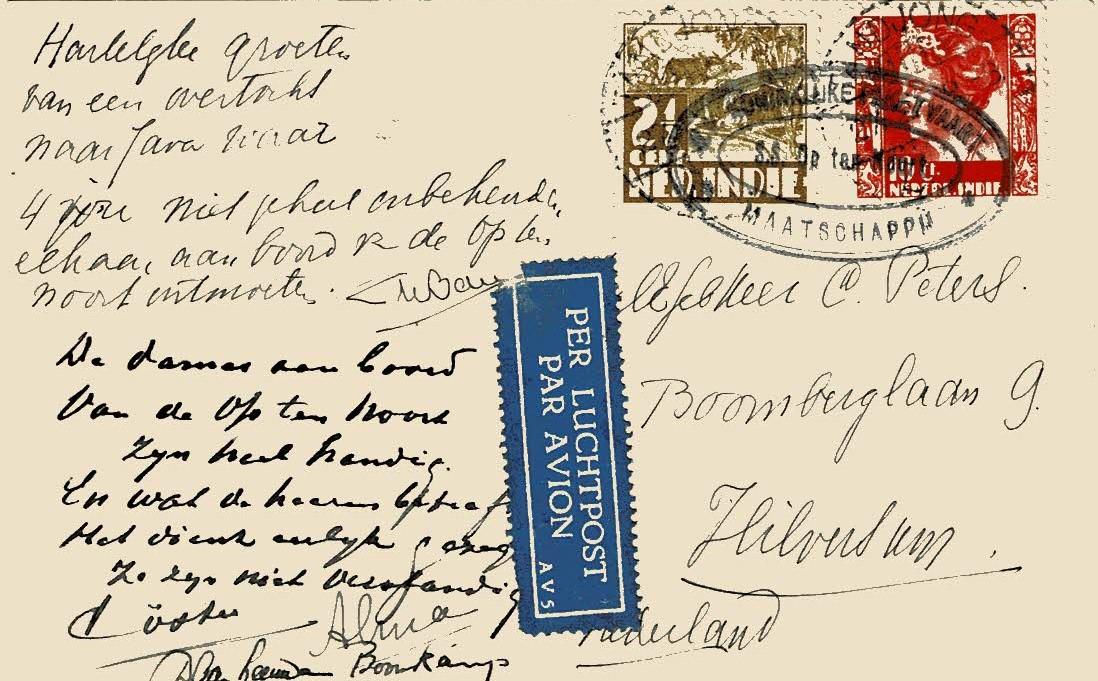 Hartelijke groeten
van een overtocht
naar Java waar
4 niet geheel onbekenden
elkaar aan boord v. de Op ten
Noort ontmoeten.
De dames aan boord
Van de Op ten Noort
Zyn heel handig.
En wat de heeren betref
Het dient eerlyk gezeg
Ze zyn niet verstandig
Cöster
Alma
Boonkamp
2½
NED. INDIE
10 Ct.
NED. INDIE
MAATSCHAPPIJ
S.S. Op ten Noort
PER LUCHTPOST
PAR AVION
AVS
C. Peters.
Boomberglaan 9.
Hilversum.
Nederland